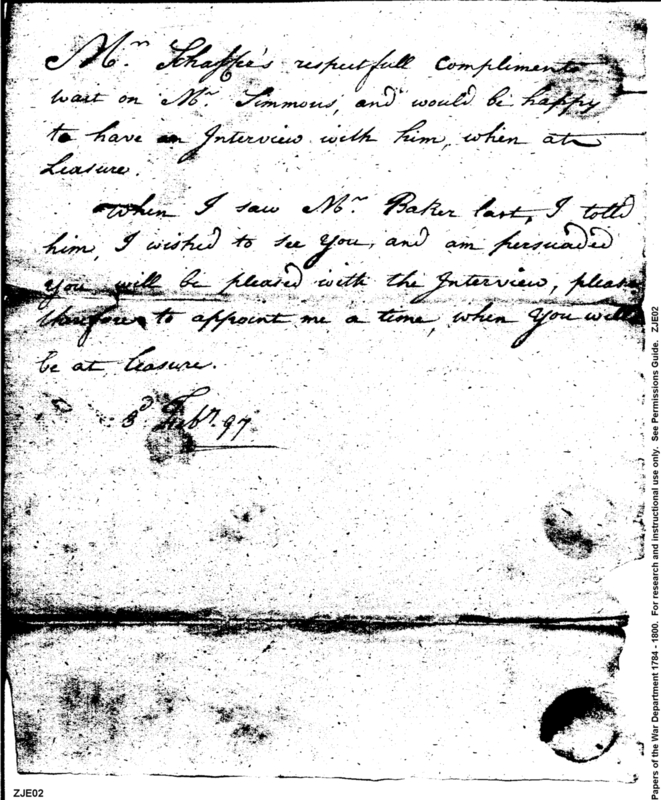 Mr. Schaffer's respectfull compliments
wait on Mr. Simmons, and would be happy
to have an Interview with him, when at
Leasure.
When I saw Mr. Baker last, I tolld
him, I wished to see You, and am persuaded
You will be pleased with the Interview, please
therefore to appoint me a time, when You will
be at leasure.
3d Febr. 97
Papers of the War Department 1784 - 1800. For research and instructional use only. See Permissions Guide. ZJE02
ZJE02